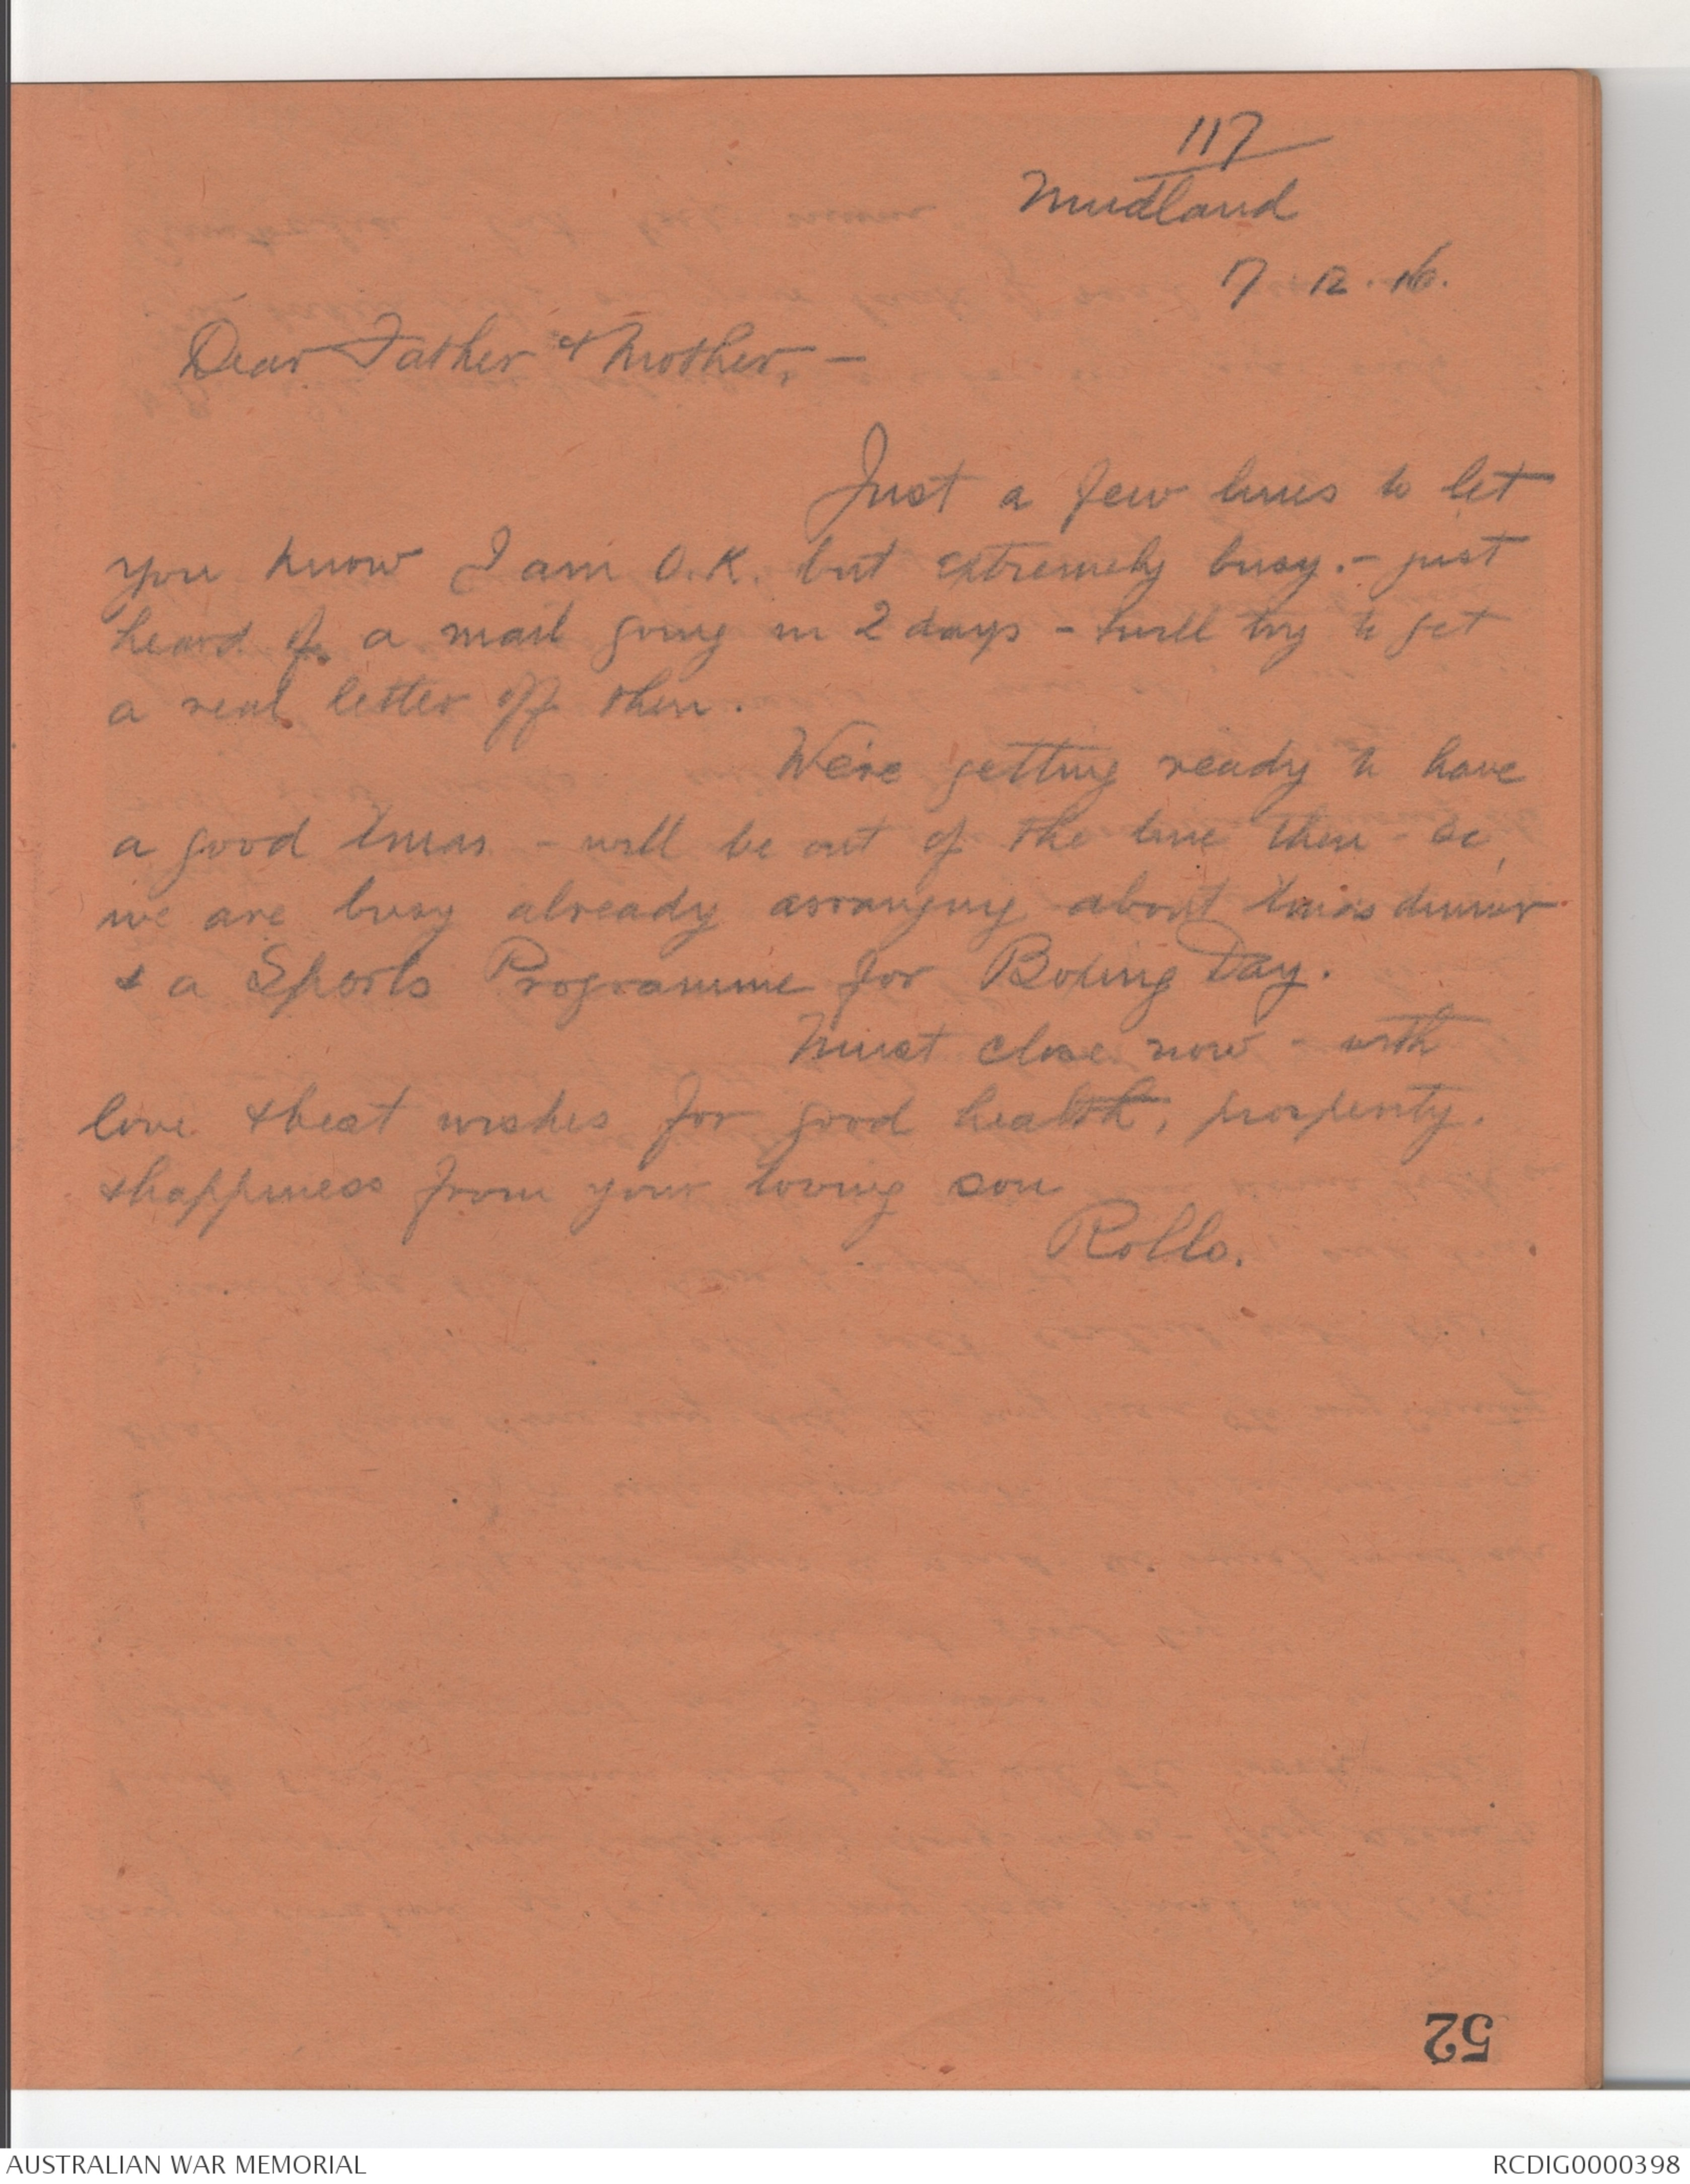 117
Mudland
7.12.16.
Dear Father & Mother, —
Just a few lines to let
you know I am O.K. but extremely busy. - just
heard of a mail going in 2 days - & will try to get
a real letter off then.
We're getting ready to have
a good Xmas - will be out of the line then - so,
we are busy already arranging about Xmas dinner
& a Sports Programme for Boxing Day.
Must close now - with
love & best wishes for good health, prosperity.
& happiness from your loving son
Rollo.
52
AUSTRALIAN WAR MEMORIAL
RCDIG0000398